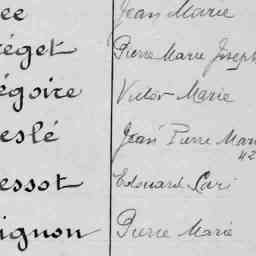 ee Jean Marie
éget Pierre Marie Joseph
égoire Victor Marie
eslé Jean Pierre Mari
42
essot Edouard
ignon Pierre Marie